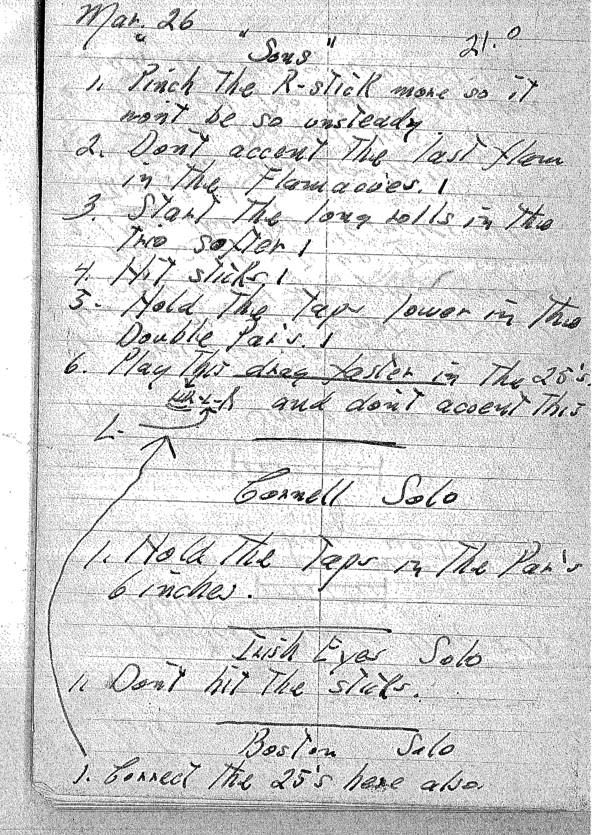 Mar. 26
"Sons" 21.0
1. Pinch The R-stick more so it
won't be so unsteady.
2. Don't accent The last flam
in The Flamacues.
3. Start The long rolls in the
Trio softer
4. Hit sticks
5. Hold The Taps lower in This
Double Par's.
6. Play This drag faster in The 25's.
L-R and don't accent This
L
Cornell Solo
1. Hold The Taps in The Par's
6 inches.
Irish Eyes Solo
1. Don't hit The sticks.
Boston Solo
1. Correct The 25's here also